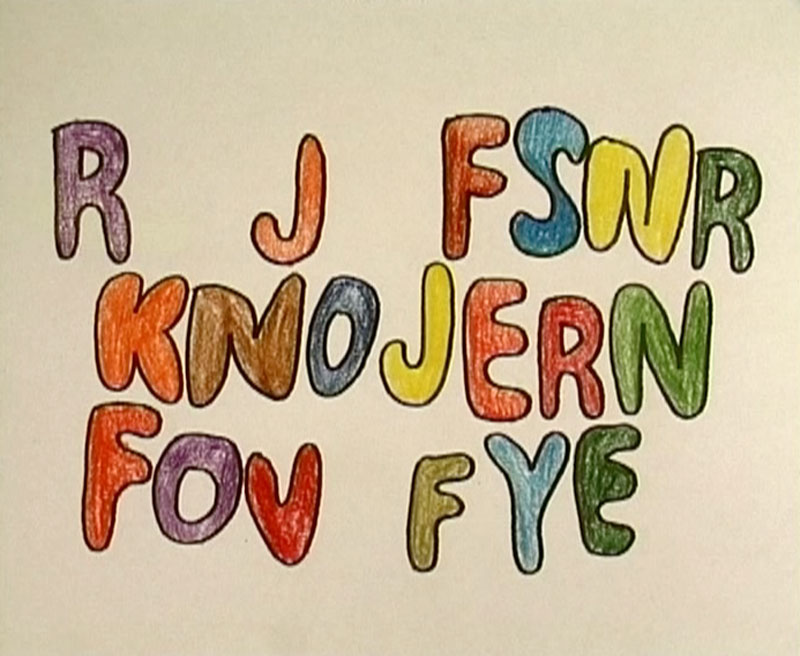 R J FSNR
KNOJERN
FOV FYE